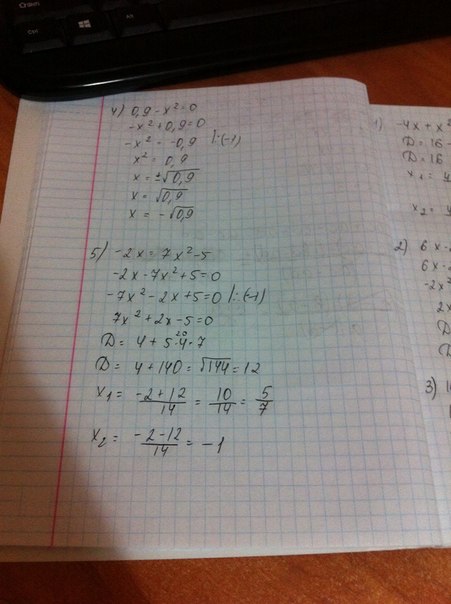 Ctrl
Alt
4) 0,9 - x² = 0
-x² + 0,9 = 0
-x² = -0,9 |:(-1)
x² = 0,9
x = ±√0,9
x = √0,9
x = -√0,9
5) -2x = 7x² - 5
-2x - 7x² + 5 = 0
-7x² - 2x + 5 = 0 |:(-1)
7x² + 2x - 5 = 0
D = 4 + 5·4·7
20
D = 4 + 140 = √144 = 12
x₁ = (-2 + 12)/14 = 10/14 = 5/7
x₂ = (-2 - 12)/14 = -1
1) -4x + x²
D = 16 -
D = 16
x₁ = 4
x₂ = 4
2) 6x -
6x -
-2x²
2x
D
3) 1